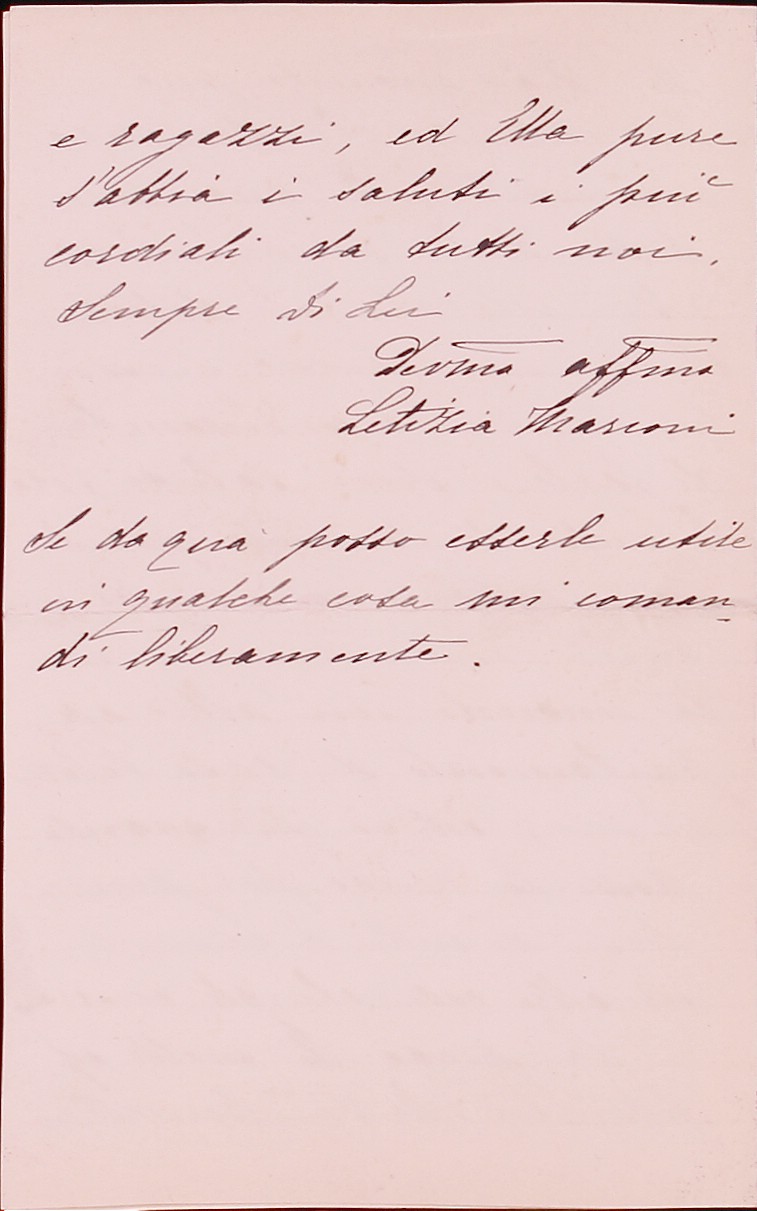 e ragazzi, ed Ella pure
s'abbia i saluti i più
cordiali da tutti noi.
Sempre di Lei
Devma affma
Letizia Marconi
Se da quà posso esserle utile
in qualche cosa mi coman-
di liberamente.